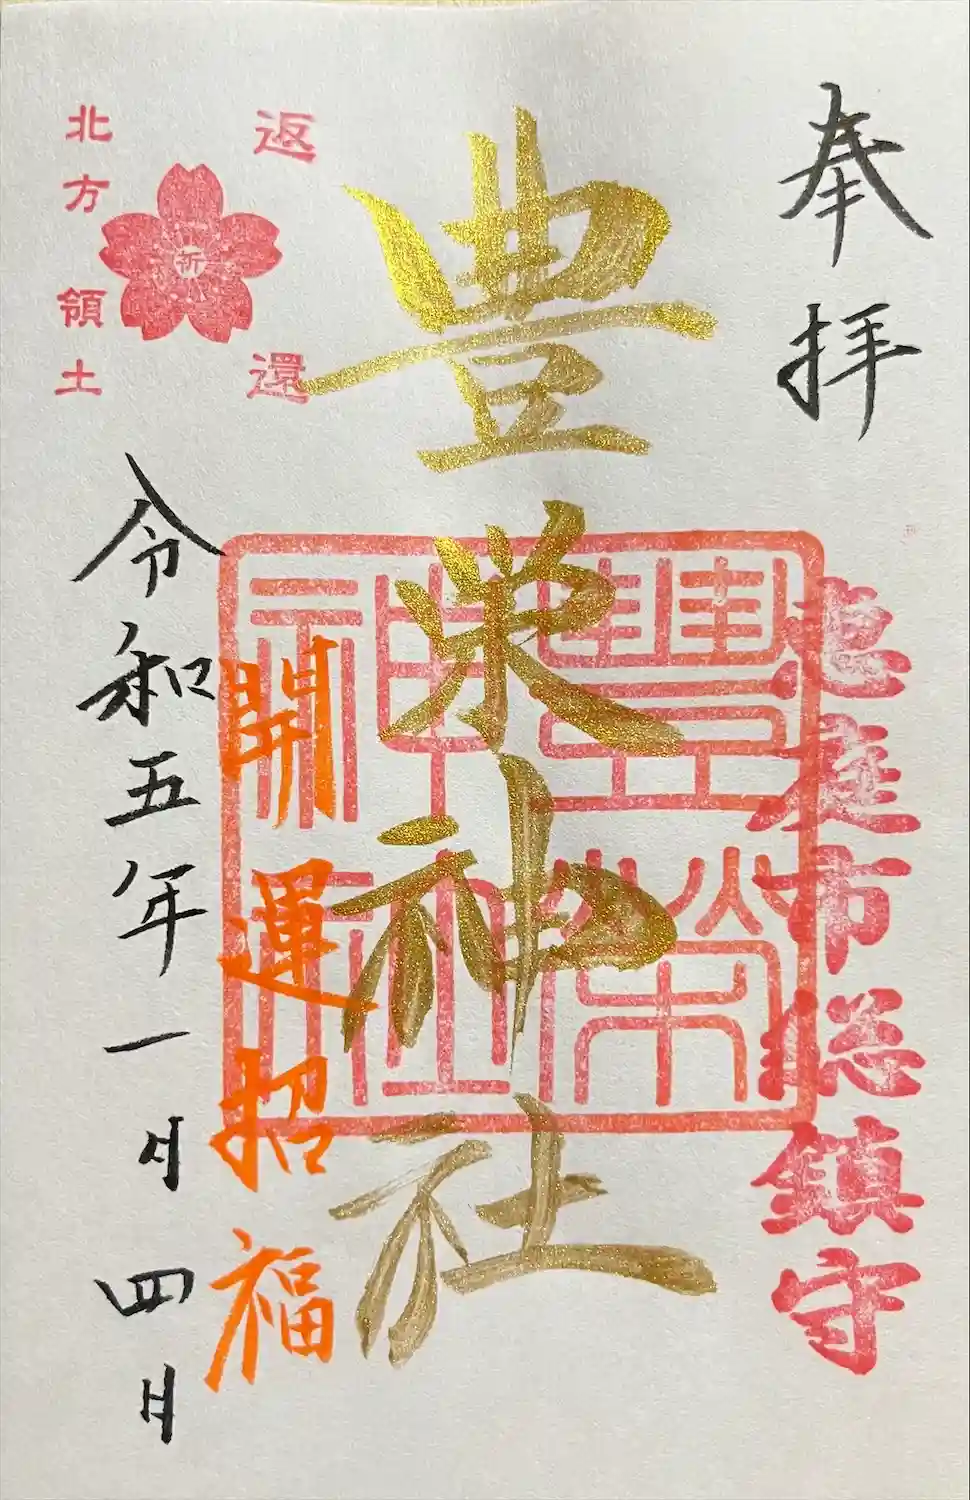 奉拝
恵庭市総鎮守
豊栄神社
豊栄神社
開運招福
返還
祈
北方領土
令和五年一月四日